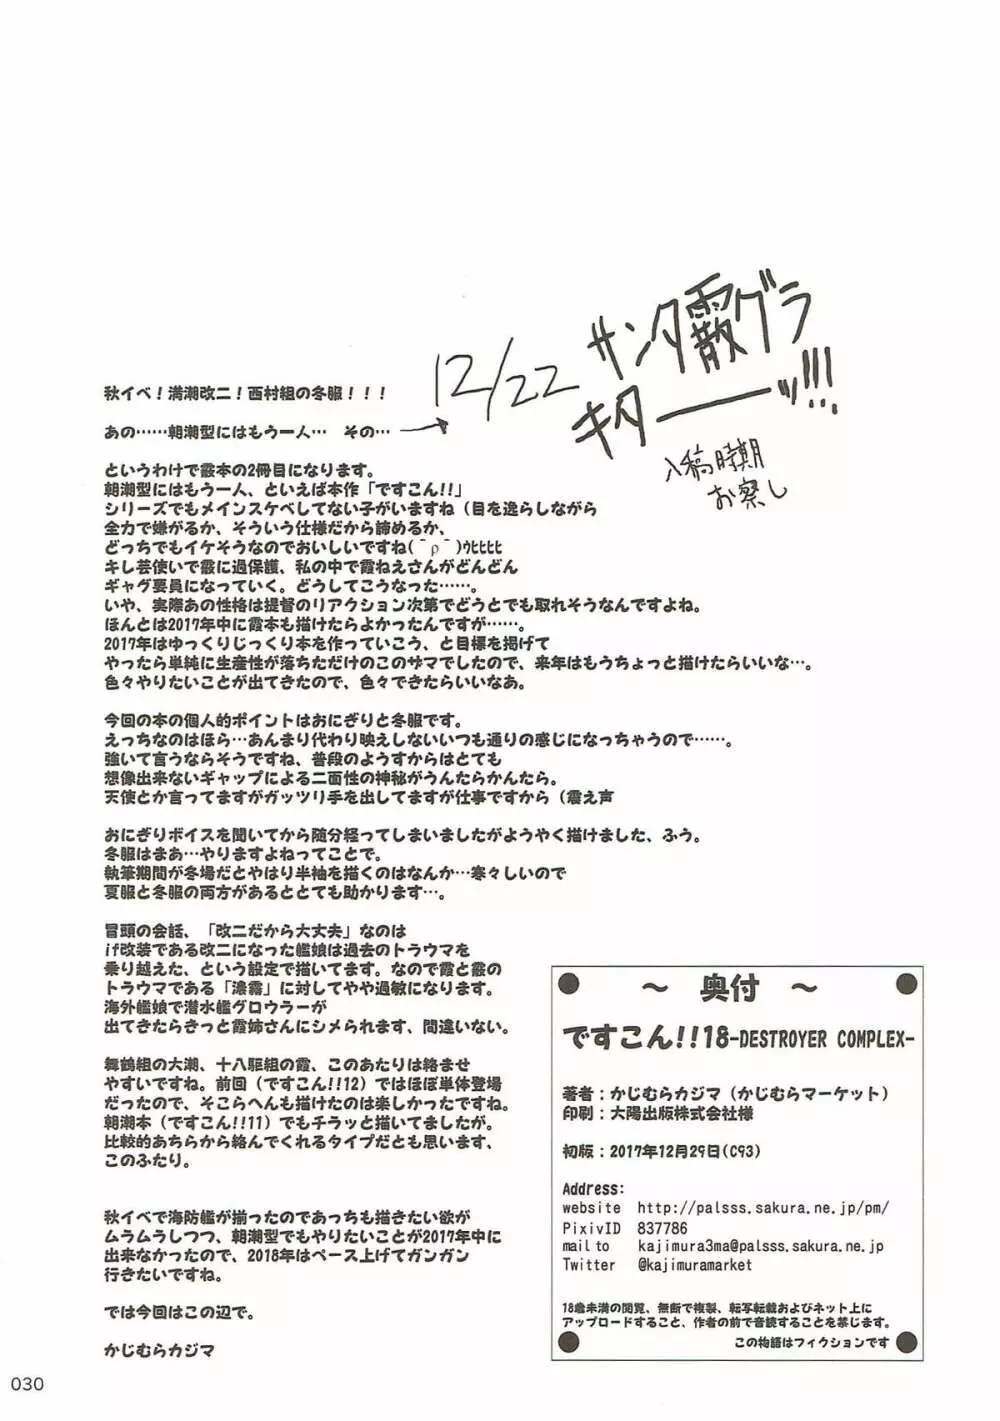 12/22 サンタ霰グラ
キターーーッ!!!
入稿時期
お察し
秋イベ！満潮改二！西村組の冬服！！！
あの……朝潮型にはもう一人… その… →
というわけで霰本の2冊目になります。
朝潮型にはもう一人、といえば本作「ですこん!!」
シリーズでもメインスケベしてない子がいますね（目を逸らしながら
全力で嫌がるか、そういう仕様だから諦めるか、
どっちでもイケそうなのでおいしいですね(￣ρ￣)ｳﾋﾋﾋﾋ
キレ芸使いで霰に過保護、私の中で霞ねえさんがどんどん
ギャグ要員になっていく。どうしてこうなった……。
いや、実際あの性格は提督のリアクション次第でどうとでも取れそうなんですよね。
ほんとは2017年中に霞本も描けたらよかったんですが……。
2017年はゆっくりじっくり本を作っていこう、と目標を掲げて
やったら単純に生産性が落ちただけのこのサマでしたので、来年はもうちょっと描けたらいいな…。
色々やりたいことが出てきたので、色々できたらいいなあ。
今回の本の個人的ポイントはおにぎりと冬服です。
えっちなのはほら…あんまり代わり映えしないいつも通りの感じになっちゃうので……。
強いて言うならそうですね、普段のようすからはとても
想像出来ないギャップによる二面性の神秘がうんたらかんたら。
天使とか言ってますがガッツリ手を出してますが仕事ですから（震え声
おにぎりボイスを聞いてから随分経ってしまいましたがようやく描けました、ふう。
冬服はまあ…やりますよねってことで。
執筆期間が冬場だとやはり半袖を描くのはなんか…寒々しいので
夏服と冬服の両方があるととても助かります…。
冒頭の会話、「改二だから大丈夫」なのは
if改装である改二になった艦娘は過去のトラウマを
乗り越えた、という設定で描いてます。なので霞と霰の
トラウマである「濃霧」に対してやや過敏になります。
海外艦娘で潜水艦グロウラーが
出てきたらきっと霞姉さんにシメられます、間違いない。
舞鶴組の大潮、十八駆組の霞、このあたりは絡ませ
やすいですね。前回（ですこん!!12）ではほぼ単体登場
だったので、そこらへんも描けたのは楽しかったですね。
朝潮本（ですこん!!11）でもチラッと描いてましたが。
比較的あちらから絡んでくれるタイプだとも思います、
このふたり。
秋イベで海防艦が揃ったのであっちも描きたい欲が
ムラムラしつつ、朝潮型でもやりたいことが2017年中に
出来なかったので、2018年はペース上げてガンガン
行きたいですね。
では今回はこの辺で。
かじむらカジマ
～ 奥付 ～
ですこん!!18-DESTROYER COMPLEX-
著者：かじむらカジマ（かじむらマーケット）
印刷：大陽出版株式会社様
初版：2017年12月29日(C93)
Address:
website http://palsss.sakura.ne.jp/pm/
PixivID 837786
mail to kajimura3ma@palsss.sakura.ne.jp
Twitter @kajimuramarket
18歳未満の閲覧、無断で複製、転写転載およびネット上に
アップロードすること、作者の前で音読することを禁じます。
この物語はフィクションです
030